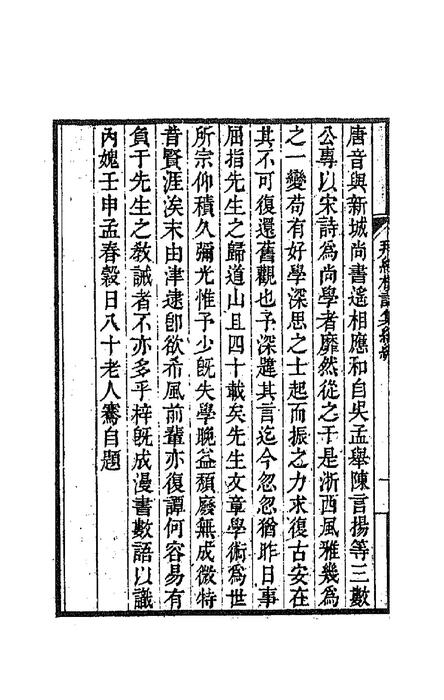 唐音與新城尚書遙相應和自吳孟舉陳言揚等三數
公專以宋詩爲尚學者靡然從之于是浙西風雅幾爲
之一變苟有好學深思之士起而振之力求復古安在
其不可復還舊觀也予深韙其言迄今忽忽猶昨日事
屈指先生之歸道山且四十載矣先生文章學術爲世
所宗仰積久彌光惟予少旣失學晚益頹廢無成微特
昔賢涯涘末由津逮卽欲希風前輩亦復譚何容易有
負于先生之教誡者不亦多乎梓旣成漫書數語以識
內媿壬申孟春穀日八十老人騫自題
拜經樓詩集續編